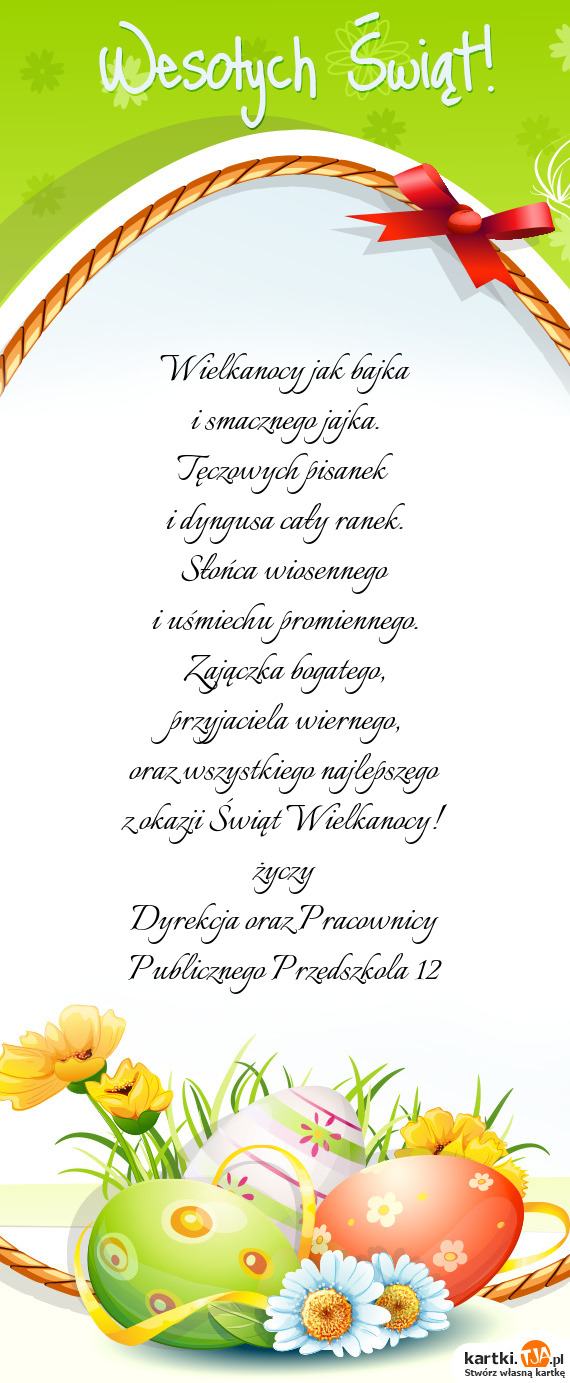 Wesołych Świąt!
Wielkanocy jak bajka
i smacznego jajka.
Tęczowych pisanek
i dyngusa cały ranek.
Słońca wiosennego
i uśmiechu promiennego.
Zajączka bogatego,
przyjaciela wiernego,
oraz wszystkiego najlepszego
z okazji Świąt Wielkanocy!
życzy
Dyrekcja oraz Pracownicy
Publicznego Przedszkola 12
kartki.TJA.pl
Stwórz własną kartkę